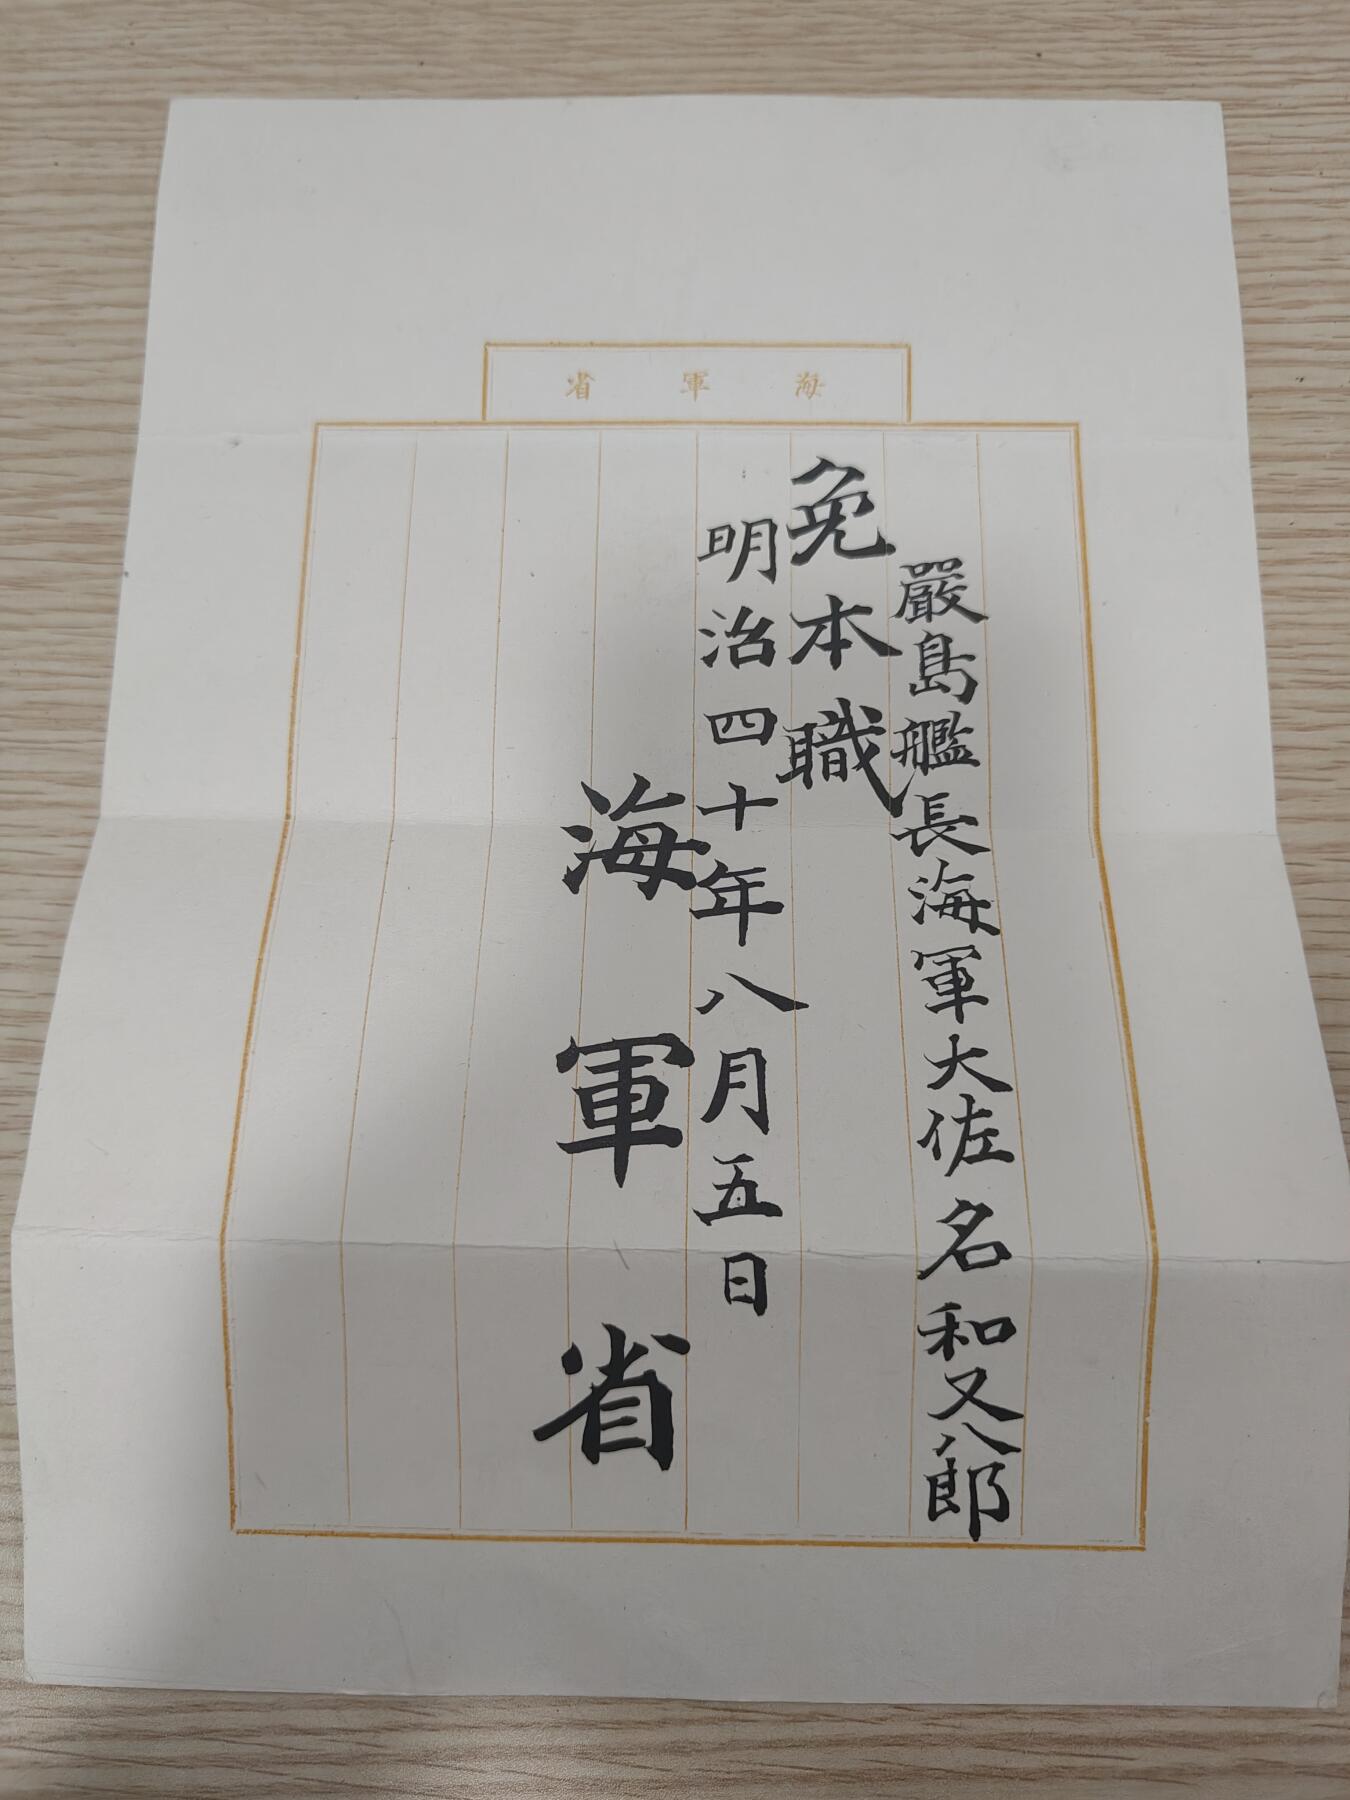 海軍省
嚴島艦長海軍大佐名和又八郎
免本職
明治四十年八月五日
海軍省